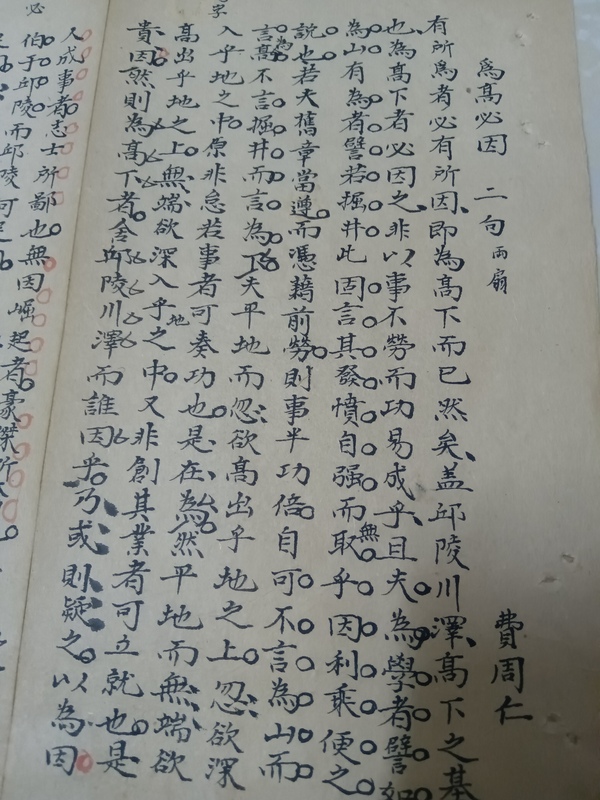 為高必因 二句 兩扇
費周仁
有所為者必有所因即為高下而已然矣蓋邱陵川澤高下之基
也為高下者必因之非以事不勞而功易成乎且夫為學者譬如
為山有為者譬若掘井此固言其發憤自强而無取乎因利乘便之
說也若夫舊章當遵而憑藉前勞則事半功倍自可不言為山而
言為高不言掘井而言為下夫平地而忽欲高出乎地之上忽欲深
入乎地之中原非怠若事者可奏功也是在為然平地而無端欲
高出乎地之上無端欲深入乎地之中又非創其業者可立就也是
貴因然則為高下者舍邱陵川澤而誰因乎乃或則疑之以為因
人成事者志士所鄙也無因崛起者豪傑所
伯于邱陵而邱陵可